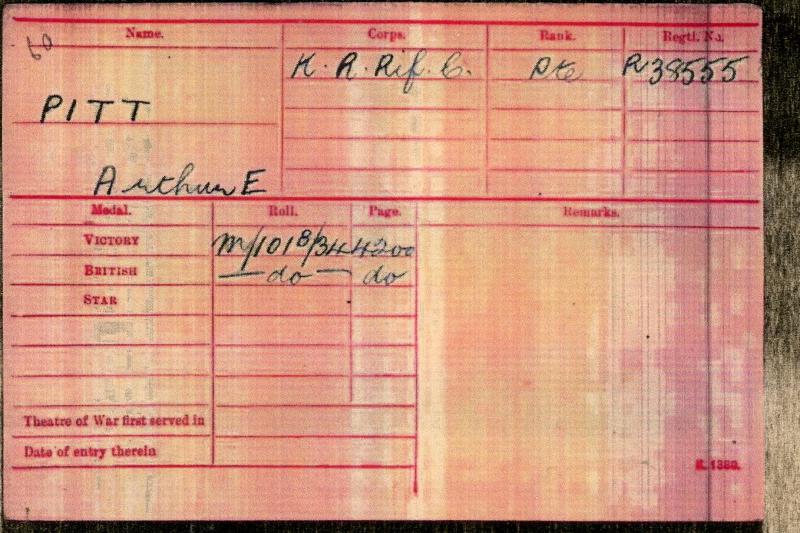 60
Name. Corps. Rank. Regtl. No.
K. R. Rif. C. Pte R38555
PITT
Arthur E
Medal. Roll. Page. Remarks.
VICTORY M/101B/344 4200
BRITISH — do — do
STAR
Theatre of War first served in
Date of entry therein
K. 1380.